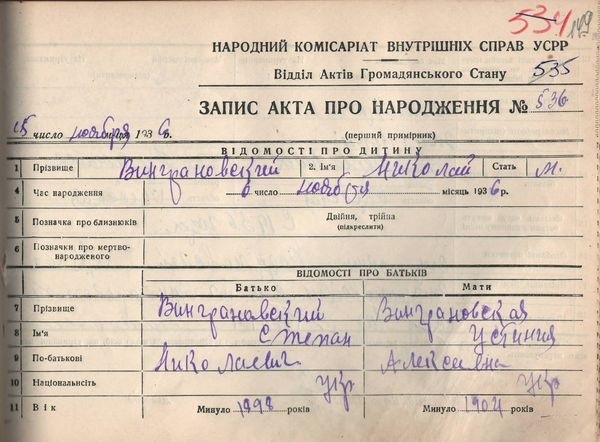 534 149
НАРОДНИЙ КОМІСАРІАТ ВНУТРІШНІХ СПРАВ УСРР
Відділ Актів Громадянського Стану 535
ЗАПИС АКТА ПРО НАРОДЖЕННЯ № 536
15 число ноября 1936 р. (перший примірник)
ВІДОМОСТІ ПРО ДИТИНУ
1 Прізвище Винграновский 2. Ім'я Николай Стать м.
4 Час народження 6 число ноября місяць 1936 р.
5 Позначка про близнюків Двійня, трійня
(підкреслити)
6 Позначки про мертво-
народженого
ВІДОМОСТІ ПРО БАТЬКІВ
Батько Мати
7 Прізвище Винграновский Винграновская
8 Ім'я Степан Устиния
9 По-батькові Николаевич Алексеевна
10 Національність укр укр
11 Вік Минуло 1898 років Минуло 1904 років